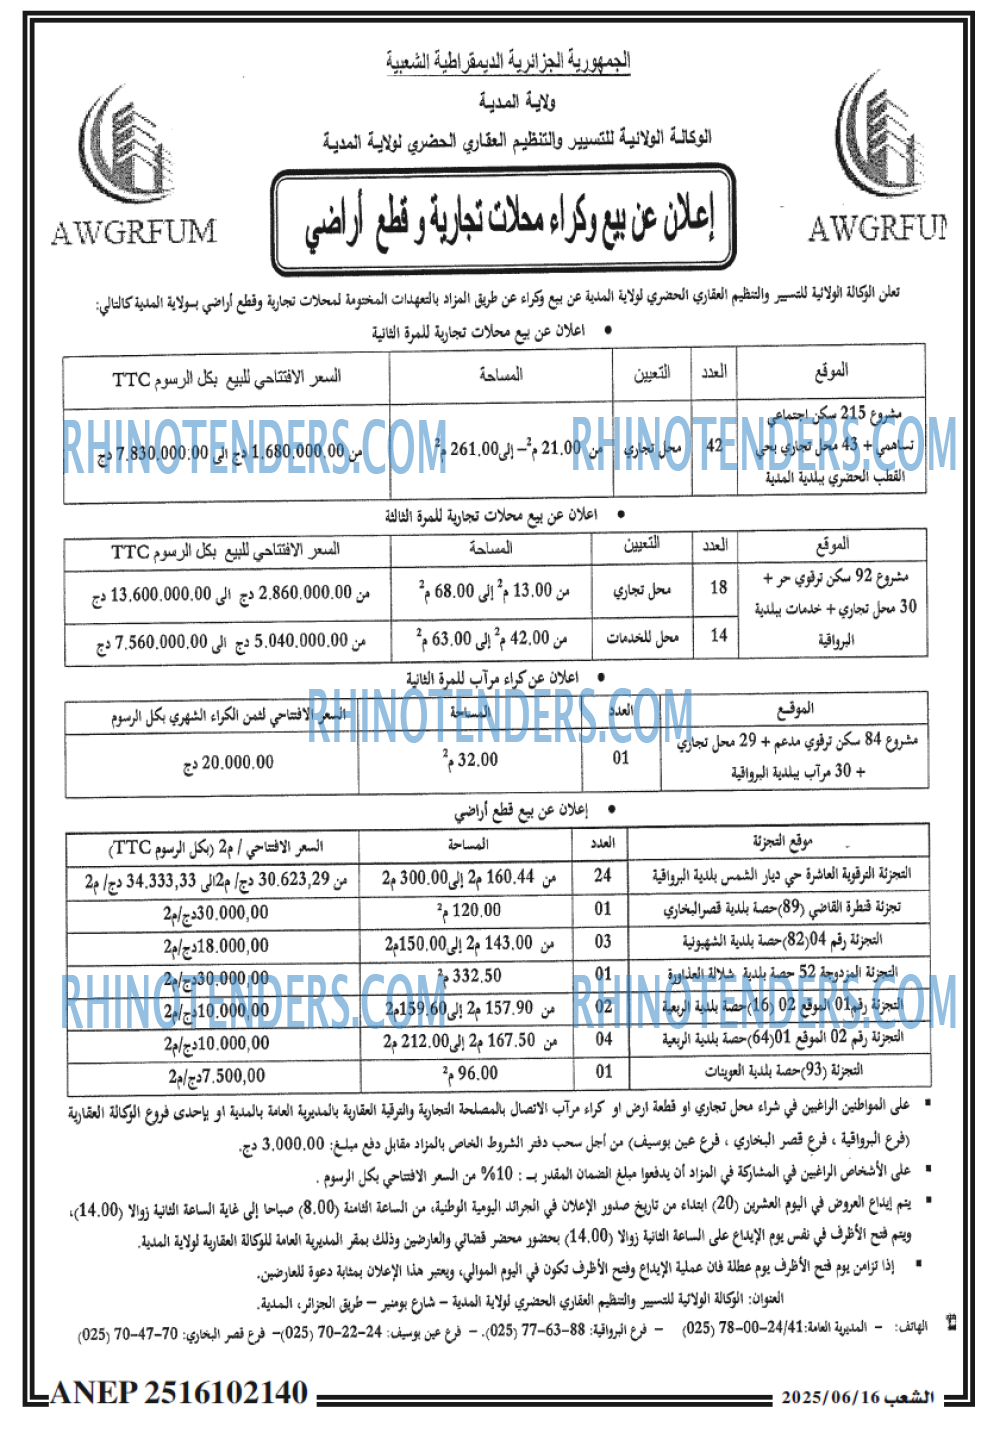 الجمهورية الجزائرية الديمقراطية الشعبية
ولاية المدية
الوكالة الولائية للتسيير والتنظيم العقاري الحضري لولاية المدية
AWGRFUM
AWGRFUM
إعلان عن بيع وكراء محلات تجارية و قطع أراضي
تعلن الوكالة الولائية للتسيير والتنظيم العقاري الحضري لولاية المدية عن بيع وكراء عن طريق المزاد بالتعهدات المختومة لمحلات تجارية وقطع أراضي بـولاية المدية كالتالي:
• اعلان عن بيع محلات تجارية للمرة الثانية
الموقع العدد التعيين المساحة السعر الافتتاحي للبيع بكل الرسوم TTC
مشروع 215 سكن اجتماعي
تساهمي + 43 محل تجاري بحي
القطب الحضري ببلدية المدية
42 محل تجاري من 21.00 م²– إلى 261.00 م² من 1.680.000.00 دج الى 7.830.000.00 دج
RHINOTENDERS.COM RHINOTENDERS.COM
• اعلان عن بيع محلات تجارية للمرة الثالثة
الموقع العدد التعيين المساحة السعر الافتتاحي للبيع بكل الرسوم TTC
مشروع 92 سكن ترقوي حر +
30 محل تجاري + خدمات ببلدية
البرواقية
18 محل تجاري من 13.00 م² إلى 68.00 م² من 2.860.000.00 دج الى 13.600.000.00 دج
14 محل للخدمات من 42.00 م² إلى 63.00 م² من 5.040.000.00 دج الى 7.560.000.00 دج
• اعلان عن كراء مرآب للمرة الثانية
الموقع العدد المساحة السعر الافتتاحي لثمن الكراء الشهري بكل الرسوم
RHINOTENDERS.COM
مشروع 84 سكن ترقوي مدعم + 29 محل تجاري
+ 30 مرآب ببلدية البرواقية
01 32.00 م² 20.000.00 دج
• إعلان عن بيع قطع أراضي
موقع التجزئة العدد المساحة السعر الافتتاحي / م2 (بكل الرسوم TTC)
التجزئة الترقوية العاشرة حي ديار الشمس بلدية البرواقية 24 من 160.44 م2 إلى 300.00 م2 من 30.623,29 دج/ م2 الى 34.333,33 دج/ م2
تجزئة قنطرة القاضي (89)حصة بلدية قصرالبخاري 01 120.00 م² 30.000,00دج/م2
التجزئة رقم 04(82)حصة بلدية الشهبونية 03 من 143.00 م2 إلى150.00م2 18.000,00دج/م2
التجزئة المزدوجة 52 حصة بلدية شلالة العذاورة 01 332.50 م² 30.000,00دج/م2
التجزئة رقم01 الموقع 02 (16)حصة بلدية الربعية 02 من 157.90 م2 إلى159.60م2 10.000,00دج/م2
RHINOTENDERS.COM RHINOTENDERS.COM
التجزئة رقم 02 الموقع 01(64)حصة بلدية الربعية 04 من 167.50 م2 إلى212.00 م2 10.000,00دج/م2
التجزئة (93)حصة بلدية العوينات 01 96.00 م² 7.500,00دج/م2
▪ على المواطنين الراغبين في شراء محل تجاري او قطعة ارض او كراء مرآب الاتصال بالمصلحة التجارية والترقية العقارية بالمديرية العامة بالمدية او بإحدى فروع الوكالة العقارية
(فرع البرواقية ، فرع قصر البخاري ، فرع عين بوسيف) من أجل سحب دفتر الشروط الخاص بالمزاد مقابل دفع مبلغ: 3.000.00 دج.
▪ على الأشخاص الراغبين في المشاركة في المزاد أن يدفعوا مبلغ الضمان المقدر بـ : 10% من السعر الافتتاحي بكل الرسوم .
▪ يتم إيداع العروض في اليوم العشرين (20) ابتداء من تاريخ صدور الإعلان في الجرائد اليومية الوطنية، من الساعة الثامنة (8.00) صباحا إلى غاية الساعة الثانية زوالا (14.00)،
ويتم فتح الأظرف في نفس يوم الإيداع على الساعة الثانية زوالا (14.00) بحضور محضر قضائي والعارضين وذلك بمقر المديرية العامة للوكالة العقارية لولاية المدية.
▪ إذا تزامن يوم فتح الأظرف يوم عطلة فان عملية الإيداع وفتح الأظرف تكون في اليوم الموالي، ويعتبر هذا الإعلان بمثابة دعوة للعارضين.
العنوان: الوكالة الولائية للتسيير والتنظيم العقاري الحضري لولاية المدية – شارع بومنير – طريق الجزائر، المدية.
الهاتف: – المديرية العامة:78-00-24/41 (025) – فرع البرواقية: 88-63-77 (025). – فرع عين بوسيف: 24-22-70 (025)– فرع قصر البخاري: 70-47-70 (025)
ANEP 2516102140
الشعب 2025/06/16